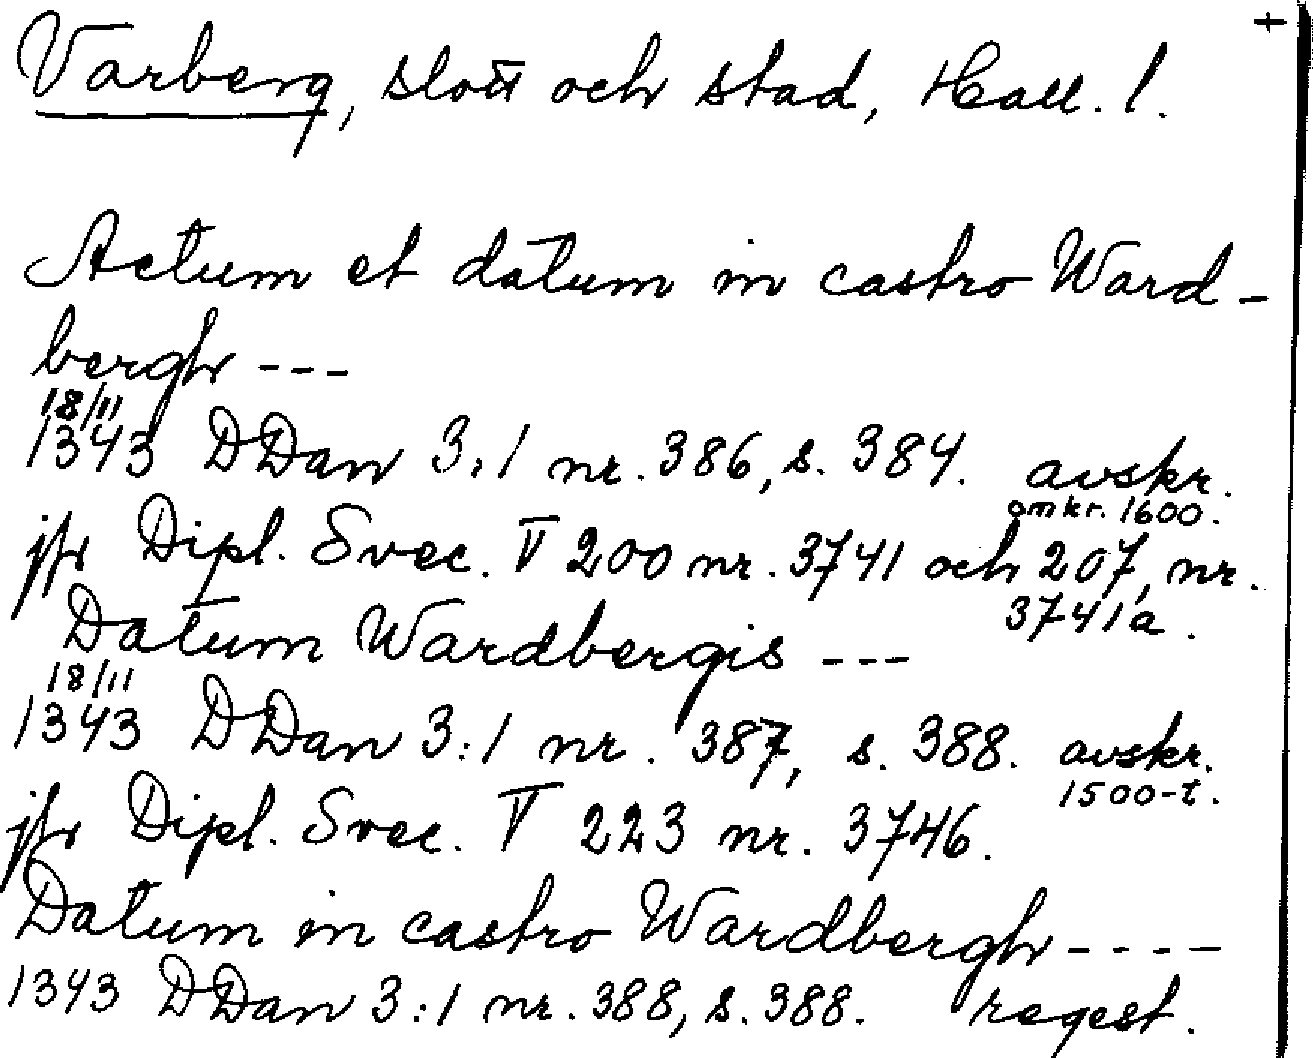 +
Varberg, slott och stad, Hall. l.
Actum et datum in castro Ward-
bergh ---
18/11
1343 DDan 3:1 nr. 386, s. 384. avskr.
omkr. 1600.
jfr Dipl. Svec. V 200 nr. 3741 och 207, nr.
3741a.
Datum Wardbergis ---
18/11
1343 DDan 3:1 nr. 387, s. 388. avskr.
1500-t.
jfr Dipl. Svec. V 223 nr. 3746.
Datum in castro Wardbergh ----
1343 DDan 3:1 nr. 388, s. 388. regest.